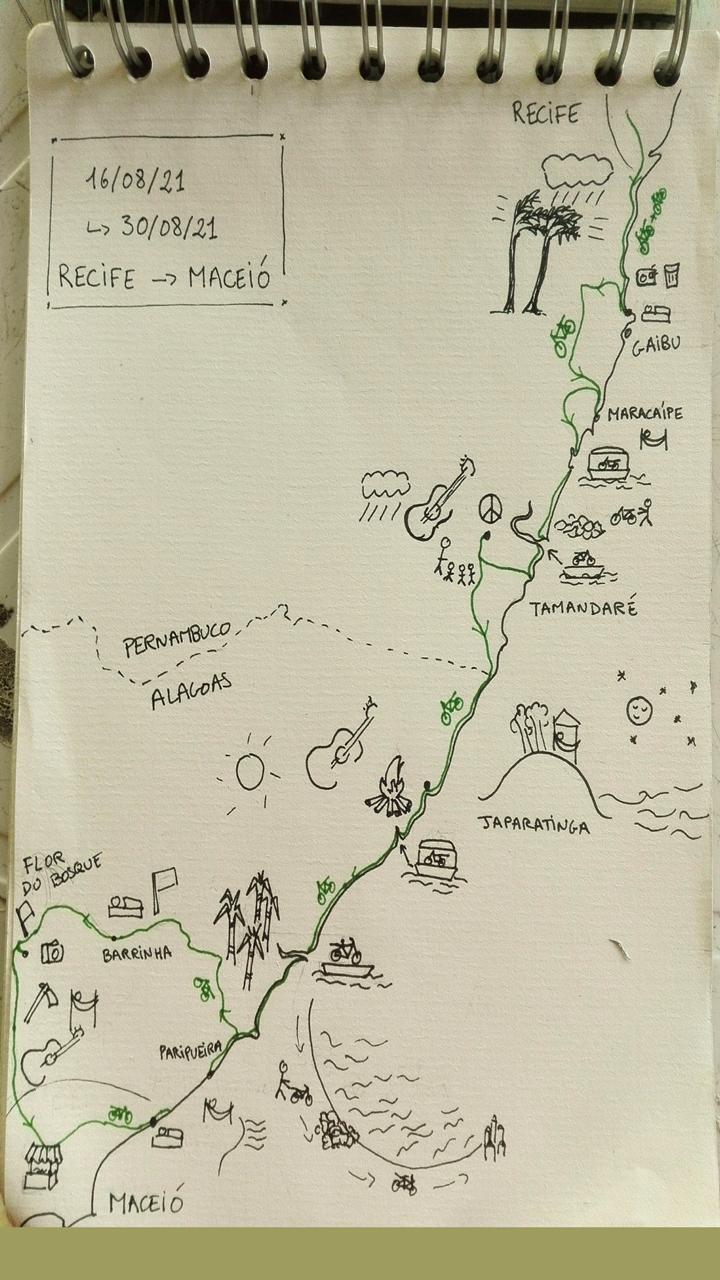 16/08/21
↳ 30/08/21
RECIFE → MACEIÓ
RECIFE
GAIBU
MARACAÍPE
TAMANDARÉ
PERNAMBUCO
ALAGOAS
JAPARATINGA
FLOR
DO BOSQUE
BARRINHA
PARIPUEIRA
MACEIÓ